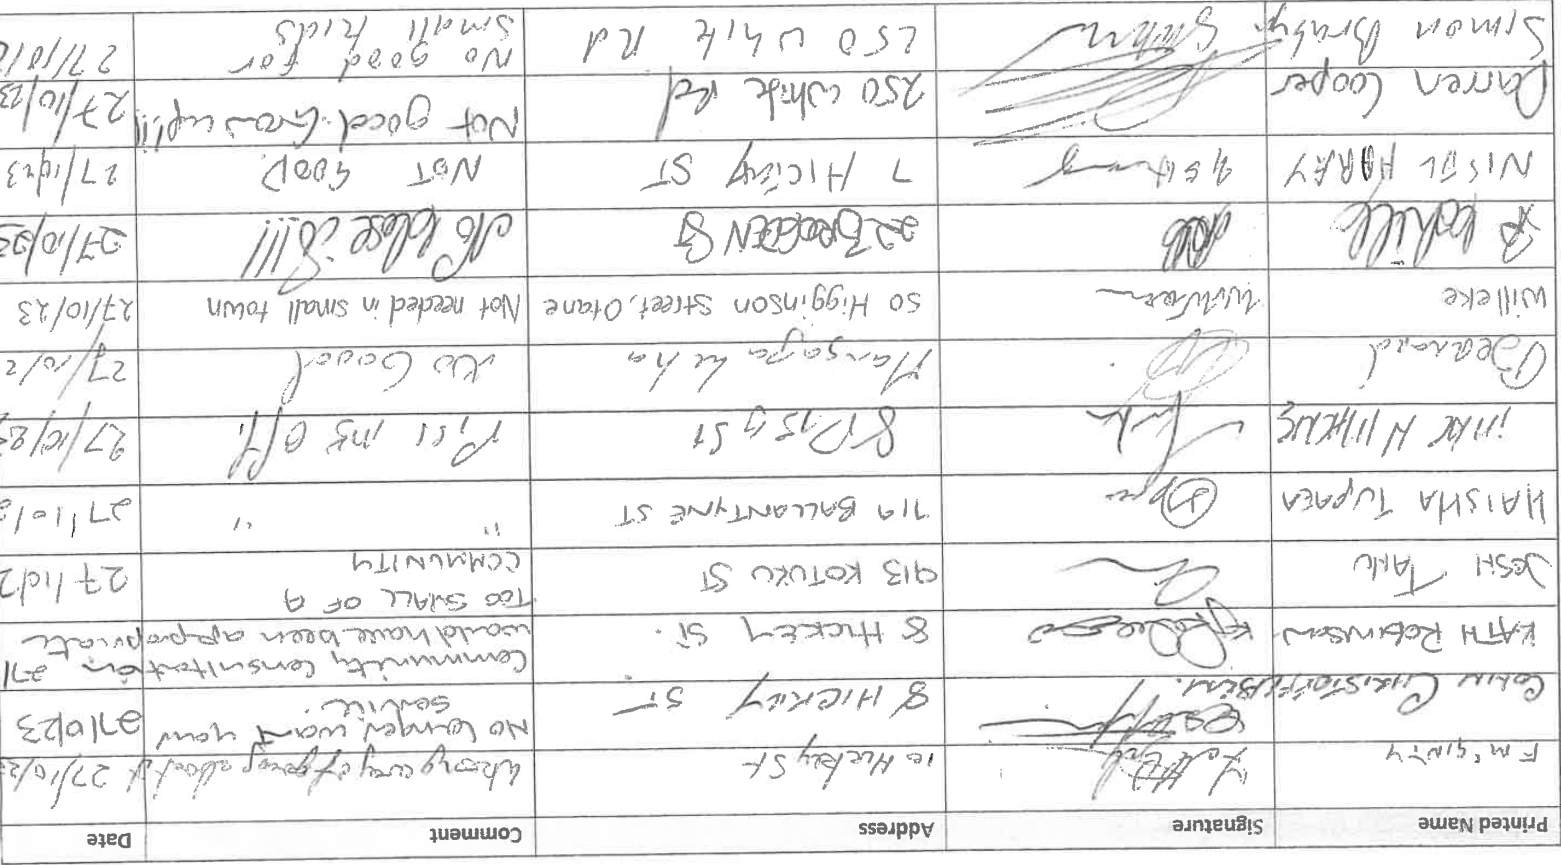 Printed Name Signature Address Comment Date
F McGINTY 10 Hickey St Wrong way of going about it 27/10/2
COLIN CHRISTOFFERSEN. 8 HICKEY ST No longer want your 27/10/23
service.
KATH ROBINSON 8 HICKEY ST. Community Consultation 271
would have been appropriate
JOSH TAHU 913 KOTUKU ST TOO SMALL OF A 27/10/2
COMMUNITY
HAISHA TUPAEA 719 BALLANTYNE ST " " 27/10/2
8 St Piss me off. 27/10/23
No Good 27/10/2
Willeke 50 Higginson Street, Otane Not needed in small town 27/10/23
22 ST No please is!!! 27/10/23
7 ST NOT GOOD 27/10/23
Darren Cooper 250 White Rd Not good. Grow up!!! 27/10/23
Simon 250 White Rd No good for 27/10/2
Small Kids